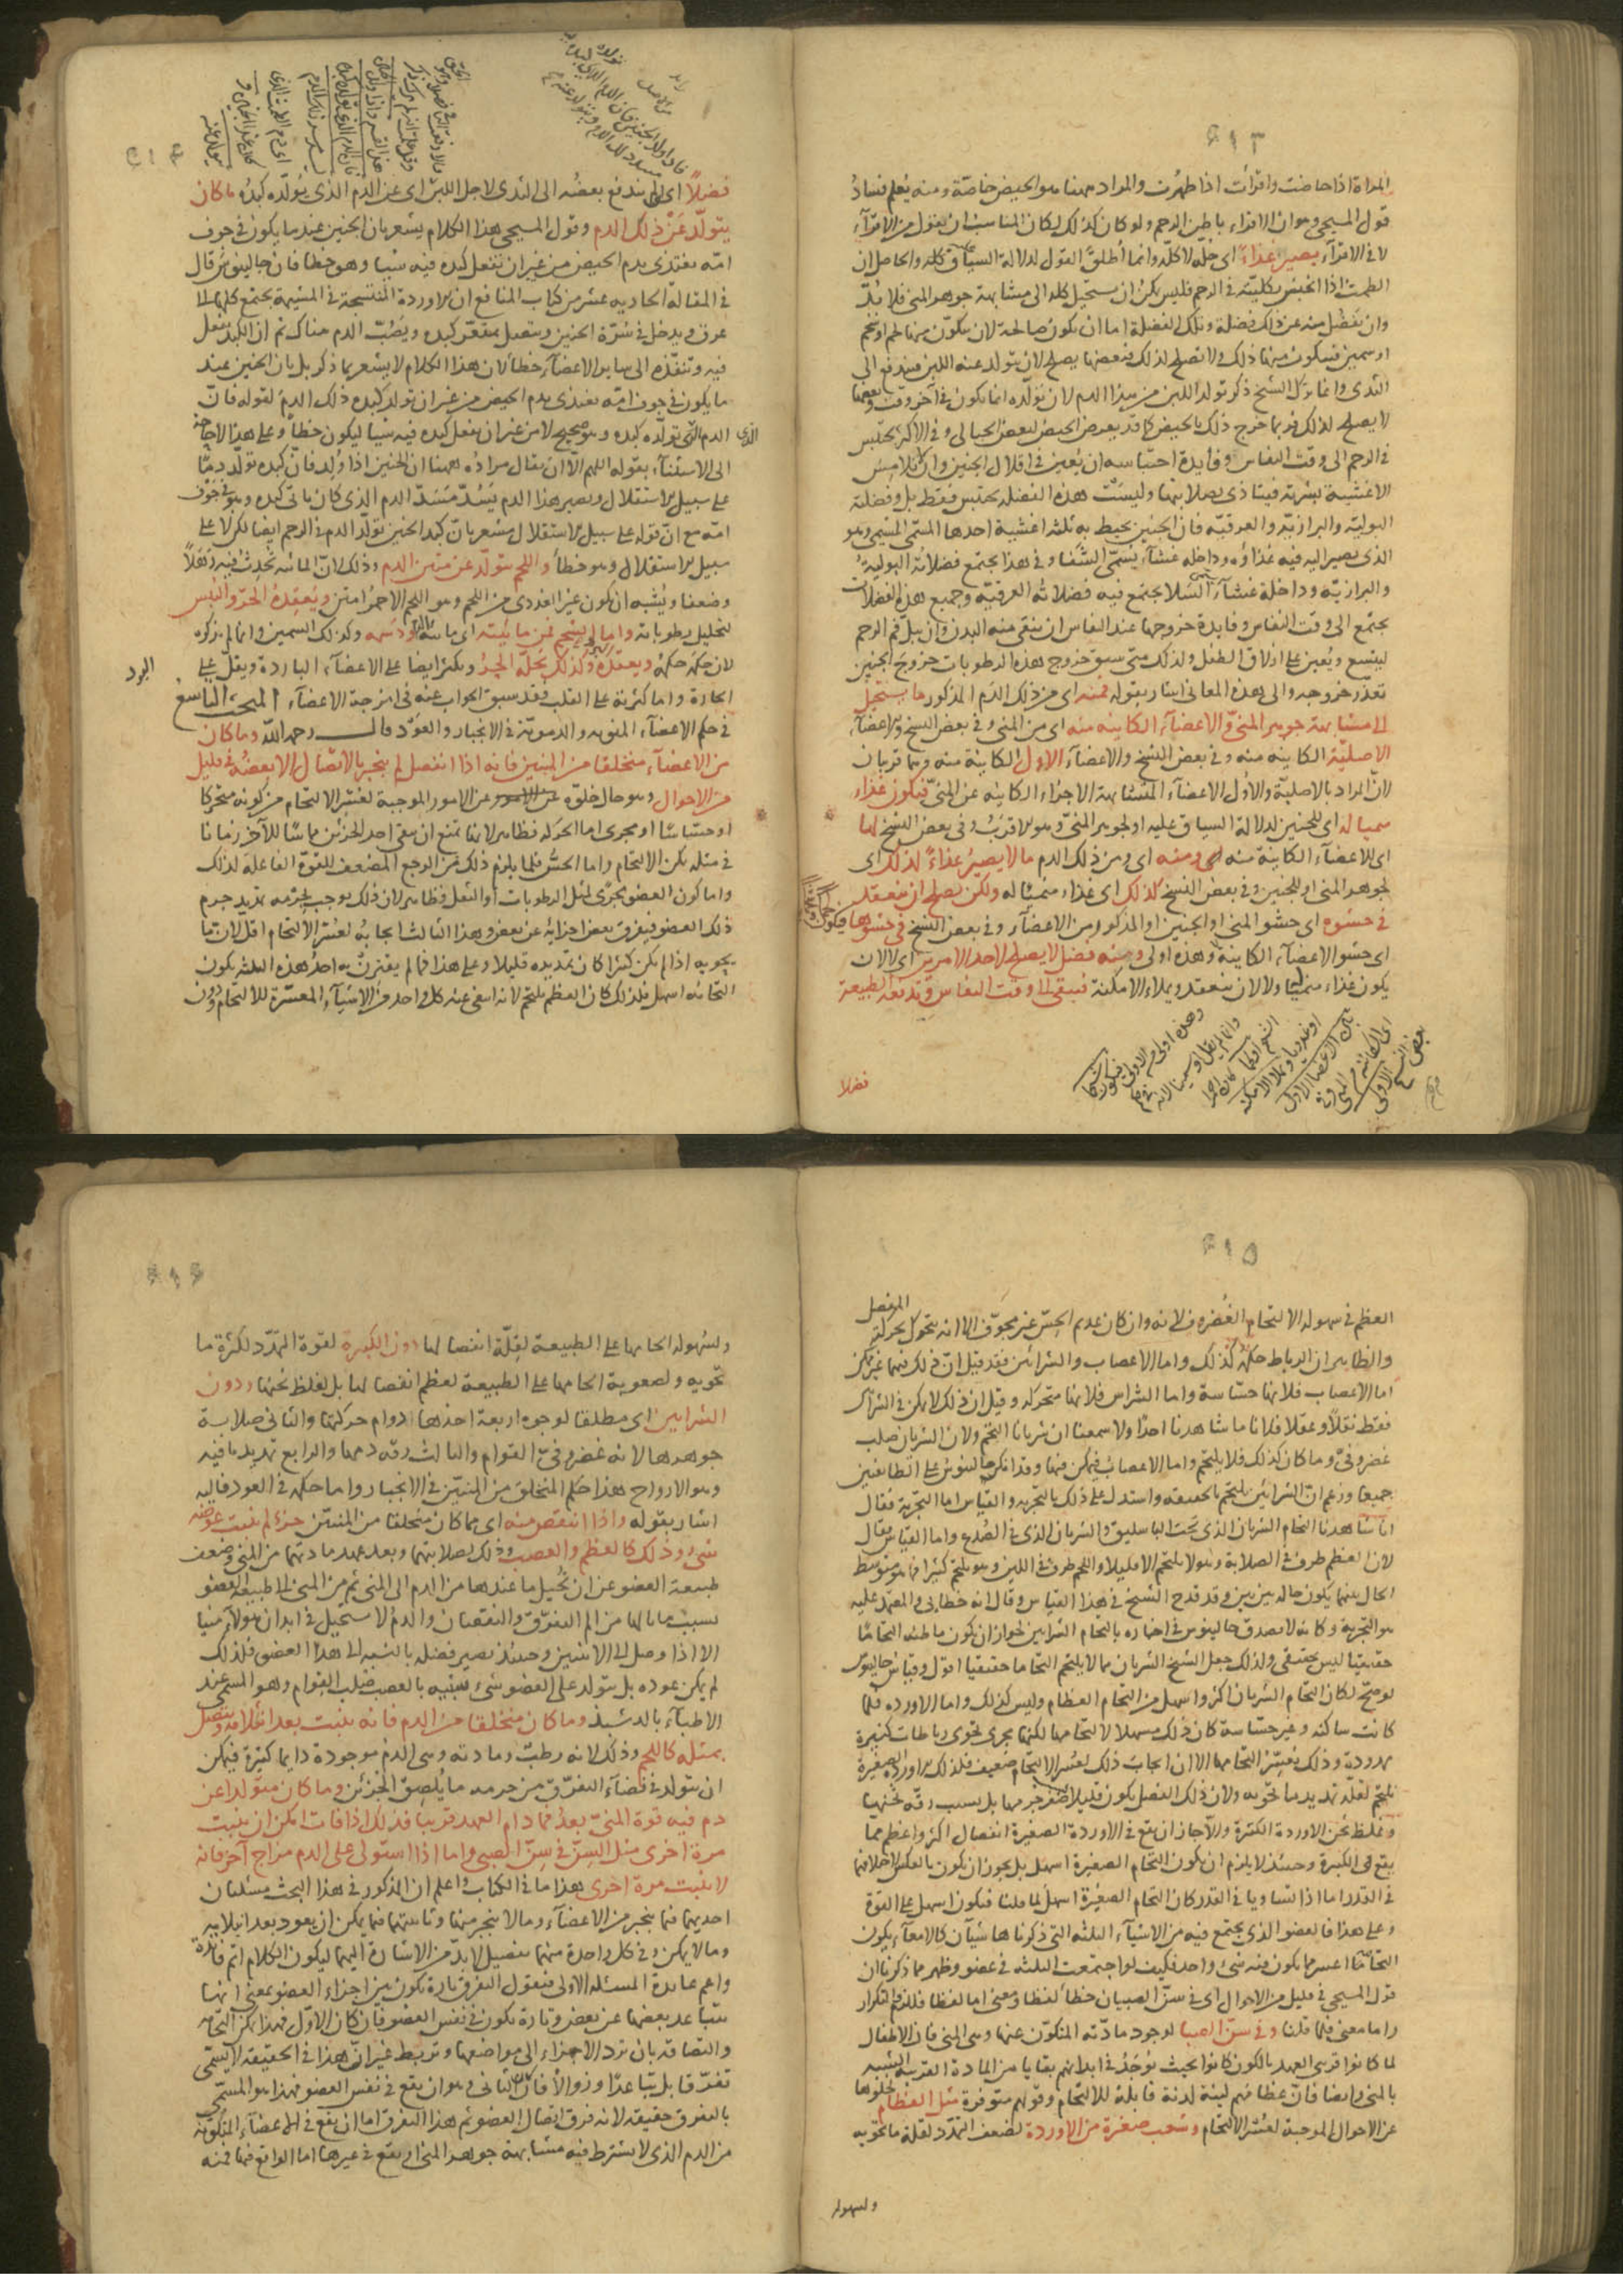 ٤١٣
المراة اذا حاضت واقرأت اذا طهرت والمراد ههنا هو الحيض خاصّة ومنه يُعلم فسادُ
قول المسيحي وهو ان الاقراء باطن الرحم ولو كان كذلك لكان المناسب ان يقول من الاقرآء
لا في الاقرآء يصير غذاءً اى جلّه لا كلّه وانما أطلق القول لدلالة السياق عليه والحاصل ان
الطمث اذا احتبس بكليته في الرحم فليس يمكن ان يستحيل كله الى مشابهة جوهر المنى فلا بُدّ
وان يفضل منه عن ذلك فضلة وتلك الفضلة اما ان يكون صالحة لان يتكوّن منها لحم او شحم
او سمين فيتكون منها ذلك او لا تصلح لذلك فبعضها يصلح لان يتولد عنه اللبن فيندفع الى
الثدى وانما ترك الشيخ ذكر تولد اللبن من هذا الدم لان تولّده انما يكون في آخر وقت وبعضها
لا يصلح لذلك فربما خرج ذلك بالحيض كما قد يعرض الحيض لبعض الحبالى وفي الاكثر يحتبس
في الرحم الى وقت النفاس وفايدة احتباسه ان يُعين في اقلال الجنين وان لا تلامس
الاغشية بشرته فيتاذى بصلابتها وليست هذه الفضله يحتبس فقط بل وفضلته
البوليّة والبرازيّة والعرقيّه فان الجنين يحيط به ثلثه اغشية احدها المسمّى المشيمى وهو
الذى يصير اليه فيه غذاؤه وداخله غشآء يُسمّى اللفافى وفي هذا يجتمع فضلاته البوليّة
والبرازيّة وداخلة غشآء السّلا يجتمع فيه فضلاتُه العرقيّه وجميع هذه الفضلات
يجتمع الى وقت النفاس وفايدة خروجها عند النفاس ان ينقى منه البدن وان يبلّ فم الرحم
ليتسع ويُعين على ازلاق الطفل ولذلك متى سبق خروج هذه الرطوبات خروجَ الجنين
تعذّر خروجه والى هذه المعانى اشار بقوله فمنه اى من ذلك الدم المذكور ما يستحيل
الى مشابهة جوهر المنىّ والاعضآء الكاينه منه اى من المنى وفي بعض النسخ والاعضآء
الاصليّة الكاينه منه وفي بعض النسخ والاعضآء الاول الكاينة منه وهما قريبان
لانّ المراد بالاصلية والاُول الاعضآء المتشابهة الاجزاء الكاينه عن المنىّ فيكون غذاء
منميا له اى للجنين لدلالة السياق عليه او لجوهر المنىّ وهو الاقرب وفي بعض النسخ لها
اى للاعضآء الكاينة منه ومنه اى ومن ذلك الدم ما لا يصيرُ غذاءً لذلك اى
لجوهر المنى او للجنين وفي بعض النسخ كذلك اى غذاء منميّا له ولكن يصلح ان ينعقد
في حشوه اى حشو المنى او الجنين او المذكور من الاعضآء وفي بعض النسخ في حشوها فيكون
اى حشو الاعضآء الكاينة وهذه اولى ومنه فضل لا يصلح لاحد الامرين اى لا لان
يكون غذاء منميّا ولا لان ينعقد ويملاء الامكنة فيبقى الى وقت النفاس وتدفعه الطبيعة
فضلا
٤١٤
فضلاً اى لم يندفع بعضُه الى الثدى لاجل اللبن اى عن الدم الذى يُولّده كبدُه ما كان
يتولّد عَنْ ذلك الدم وقول المسيحى هذا الكلام يشعر بان الجنين عند ما يكون في جوف
امّه يغتذى بدم الحيض من غير ان تفعل كبده فيه شيئا وهو خطأ فان جالينوس قال
في المقالة الحادية عشر من كتاب المنافع ان الاوردة المنتسجة في المشيمة يجتمع كلها الى
عرق ويدخل في سُرّة الجنين ويتصل بمقعّر كبده ويَصُبّ الدم هناك ثم ان الكبد تفعل
فيه وتنفّذه الى ساير الاعضآء خطأ لان هذا الكلام لا يشعر بما ذكر بل بان الجنين عند
ما يكون في جوف امّه يغتذى بدم الحيض من غير ان تولد كبده ذلك الدم لقوله فانّ
الدم الذى تولّده كبده وهو صحيح لا من غير ان يفعل كبده فيه شيئا ليكون خطأً وعلى هذا لا حاجة
الى الاستثنآء بقوله اللهم الّا ان يقال مراده ههنا ان الجنين اذا وُلد فانّ كبده تولّد دمًا
على سبيل الاستقلال ويصير هذا الدم يَسُدّ مَسَدّ الدم الذى كان ياتى كبده وهو في جَوْف
امّه مع انّ قوله على سبيل الاستقلال مشعر بانّ كبد الجنين تولّد الدم في الرحم ايضا لكن لا على
سبيل الاستقلال وهو خطأ واللحم يتولّد عن متين الدم وذلك لانّ المائيه تُحدِث فيه رَهَلاً
وضعفا ويُشبه ان يكون غير الغددى من اللحم وهو اللحم الاحمر امتن ويُعقدهُ الحرّ واليُبس
لتحليل رطوباته واما الشحم فمن مائيّته اى مائية الدم ودَسَمه وكذلك السمين وانما لم يذكره
لان حكمَه حكمُه ويعقده البرد وكذلك يَحلّه الحرُّ ويكثر ايضا على الاعضآء الباردة ويقلّ على
الحارة واما كثرته على القلب فقد سبق الجواب عنه في امزجة الاعضآء المبحث التاسع
في حكم الاعضآء المنويه والدمويّة في الانجبار والعَوْد قال رحمه اللّه وما كان
من الاعضآء متخلقا من المنيين فانه اذا انفصل لم ينجبر بالاتصال الا بعضُه في قليل
من الاحوال وهو حال خلوّه عن الامور الموجبة لعُسْر الالتحام من كونه متحركا
او حسّاسًا او مجرى اما الحركه فظاهر لانها تمنع ان يبقى احد الجزئين مماسًّا للآخر زمانا
في مثله يمكن الالتحام واما الحسُّ فلما يلزم ذلك من الوجع المضعف للقوّة الفاعلة لذلك
واما كون العضو مجرًى لمثل الرطوبات او الثفل فظاهر لان ذلك يوجب لجِرمه تمديد جرم
ذلك العضو فيفرق بعض اجزايه عن بعض وهذا الثالث ايجابهُ لعُسْر الالتحام اقل لان ما
يحويه اذا لم يكن كثيرا كان تمديده قليلا وعلى هذا فما لم يقترن به احدُ هذه الثلثه يكون
التحامُه اسهل فلذلك كان العظم يلتحم لانه انتفى عنه كل واحد من الاشيآء المعسّرة للالتحام ودون
٤١٥
العظم في سهولة الالتحام الغُضروف لانه وان كان عديم الحِسّ غير مجوّف الا انه يتحرك بحركة المفصل
والظاهر ان الرباط حكمه كذلك واما الاعصاب والشرائين فقد قيل انّ ذلك فيهما غير ممكن
اما الاعصاب فلانها حسّاسة واما الشرايين فلانها متحركه وقيل ان ذلك لا يمكن في الشرايين
فقط نقلًا وعقلا فلانا ما شاهدنا احدًا ولا سمعنا ان شريانا التحم ولان الشريان صلب
غضروفىّ وما كان كذلك فلا يلتحم واما الاعصاب فيمكن فيها وقد انكر جالينوس على الطائفتين
جميعا وزعم انّ الشرايين يلتحم بالحقيقه واستدل على ذلك بالتجربه والقياس اما التجربة فقال
انا شاهدنا التحام الشريان الذى تحت الباسليق والشريان الذى في الصُدغ واما القياس فقال
لان العظم طرف في الصلابة وهو لا يلتحم الا قليلا واللحم طرف في اللين وهو يلتحم كثيرا فما هو متوسط
الحال بينهما يكون حاله بين بين وقد قدح الشيخ في هذا القياس وقال انه خطابى والمعتمد عليه
هو التجربة وكانه لا يصدق جالينوس في اخباره بالتحام الشرايين لجواز ان يكون ما ظنه التحامًا
حقيقيّا ليس بحقيقى ولذلك جعل الشيخ الشريان مما لا يلتحم التحاما حقيقيا اقول وقياس جالينوس
لو صحّ لكان التحام الشريان اكثر واسهل من التحام العظام وليس كذلك واما الاوردة فلمّا
كانت ساكنه وغير حسّاسة كان ذلك مسهلا لالتحامها لكنها مجرى تحوى رطوبات كثيرة
ممدودة وذلك يُعسّر التحامها الا ان ايجاب ذلك لعُسْر الالتحام ضعيف فلذلك الاوردة الصغيرة
تلتحم لقلّة تمديد ما تحويه ولان ذلك الفصل يكون قليلا لصغر جرمها بل بسبب رقّه ثخنها
وغلظ ثخن الاوردة الكثيرة والّا جاز ان يقع في الاوردة الصغيرة انفصال اكثر واعظم ممّا
يقع في الكبيرة وحينئذ لا يلزم ان يكون التحام الصغيرة اسهل بل يجوز ان يكون بالعكس لاختلافهما
في القدر اما اذا تساويا في القدر كان التحام الصغيرة اسهلُ لما قلنا فيكون اسهل على القوة
وعلى هذا فالعضو الذى يجتمع فيه من الاشيآء الثلثه التى ذكرناها شيآن كالامعآء يكون
التحامها اعسر مما يكون فيه شىء واحد فكيف لو اجتمعت الثلثه في عضو وظهر مما ذكرنا ان
قول المسيحى في قليل من الاحوال اى في سنّ الصبيان خطأ لفظا ومعنى اما لفظا فللزوم التكرار
واما معنى فلما قلنا وفي سنّ الصبا لوجود مادّته المتكوّن عنها وهى المنى فان الاطفال
لما كانوا قريبى العهد بالكون كانوا بحيث يُوجَدُ في ابدانهم بقايا من المادة القريبة الشبيه
بالمنى وايضا فانّ عظامهم لينة لدنة قابلة للالتحام وقواهم متوفرة مثل العظام لخلوها
عن الاحوال الموجبة لعُسْر الالتحام وشعب صغيرة من الاوردة لضعف التمدّد لقلة ما تحويه
ولسهولة
٤١٦
ولسُهولة الحامها على الطبيعة لقلّة انفصالها دون الكبيرة لقوة التمدّد لكثرة ما
تحويه ولصعوبة الحامها على الطبيعة لعظم انفصالها بل لغلظ ثخنها ودون
الشرايين اى مطلقا لوجوه اربعة احدها دوام حركتها والثانى صلابة
جوهرها لانه غضروفىّ القوام والثالث رقّه دمها والرابع تمديد ما فيه
وهو الارواح هذا حكم المتخلق من المنيّين في الانجبار واما حكمه في العود فاليه
اشار بقوله واذا انتقص منه اى مما كان متخلقا من المنيّين جزء لم ينبت عوضه
شىء وذلك كالعظم والعصب وذلك لصلابتهما وبعد عهد مادتهما من المنى وضعف
طبيعة العضو عن ان تُحيل ما عندها من الدم الى المنى ثم من المنى الى طبيعة العضو
بسبب ما نالها من الم التفرّق والنقصان والدمُ لا يستحيل في ابدان هولآء منيا
الا اذا وصل الى الانثيين وحينئذ يصير فضله بالنسبه الى هذا العضو فلذلك
لم يمكن عوده بل يتولد على العضو شىء شبيه بالعصب صلب القوام وهو المسمى عند
الاطبآء بالدشبذ وما كان متخلقا من الدم فانه ينبت بعد انثلامه ويتصل
بمثله كاللحم وذلك لانه رطبٌ ومادته وهى الدم موجودة دايما كثيرة فيمكن
ان يتولد في فضآء التفرّق من جرمه ما يُلصِقُ الجُزئين وما كان متولدا عن
دم فيه قوة المنىّ بعدُ فما دام العهد قريبا فذلك اذا فات امكن ان ينبت
مرة اخرى مثل السِنّ في سِنّ الصبى واما اذا استولى على الدم مزاج آخر فانه
لا ينبت مرة اخرى هذا ما في الكتاب واعلم ان المذكور في هذا البحث مسئلتان
احديهما فيما ينجبر من الاعضآء وما لا ينجبر منها وثانيتهما فيما يمكن ان يعود بعد انثلامه
وما لا يمكن وفي كل واحدة منهما تفصيل لا بدّ من الاشارة اليهما ليكون الكلام اتم فايدة
واعم عايدة المسئلة الاولى فنقول التفرق تارة يكون بين اجزاء العضو بمعنى انها
يتباعد بعضها عن بعض وتارة يكون في نفس العضو فان كان الاوّل فهذا يمكن التحامه
والتصاقه بان ترد الاجزاء الى مواضعها وتربط غير انّ هذا في الحقيقه لا يسمى
تفرّقا بل تباعدًا وزوالًا وان كان الثانى وهو ان يقع في نفس العضو فهذا هو المسمّى
بالتفرق حقيقه لانه فرق اتصال العضو ثم هذا التفرق اما ان يقع في الاعضآء المتكوّنة
من الدم الذى لا يشترط فيه مشابهة جوهر المنى او يقع في غيرها اما الواقع فيها فمنه